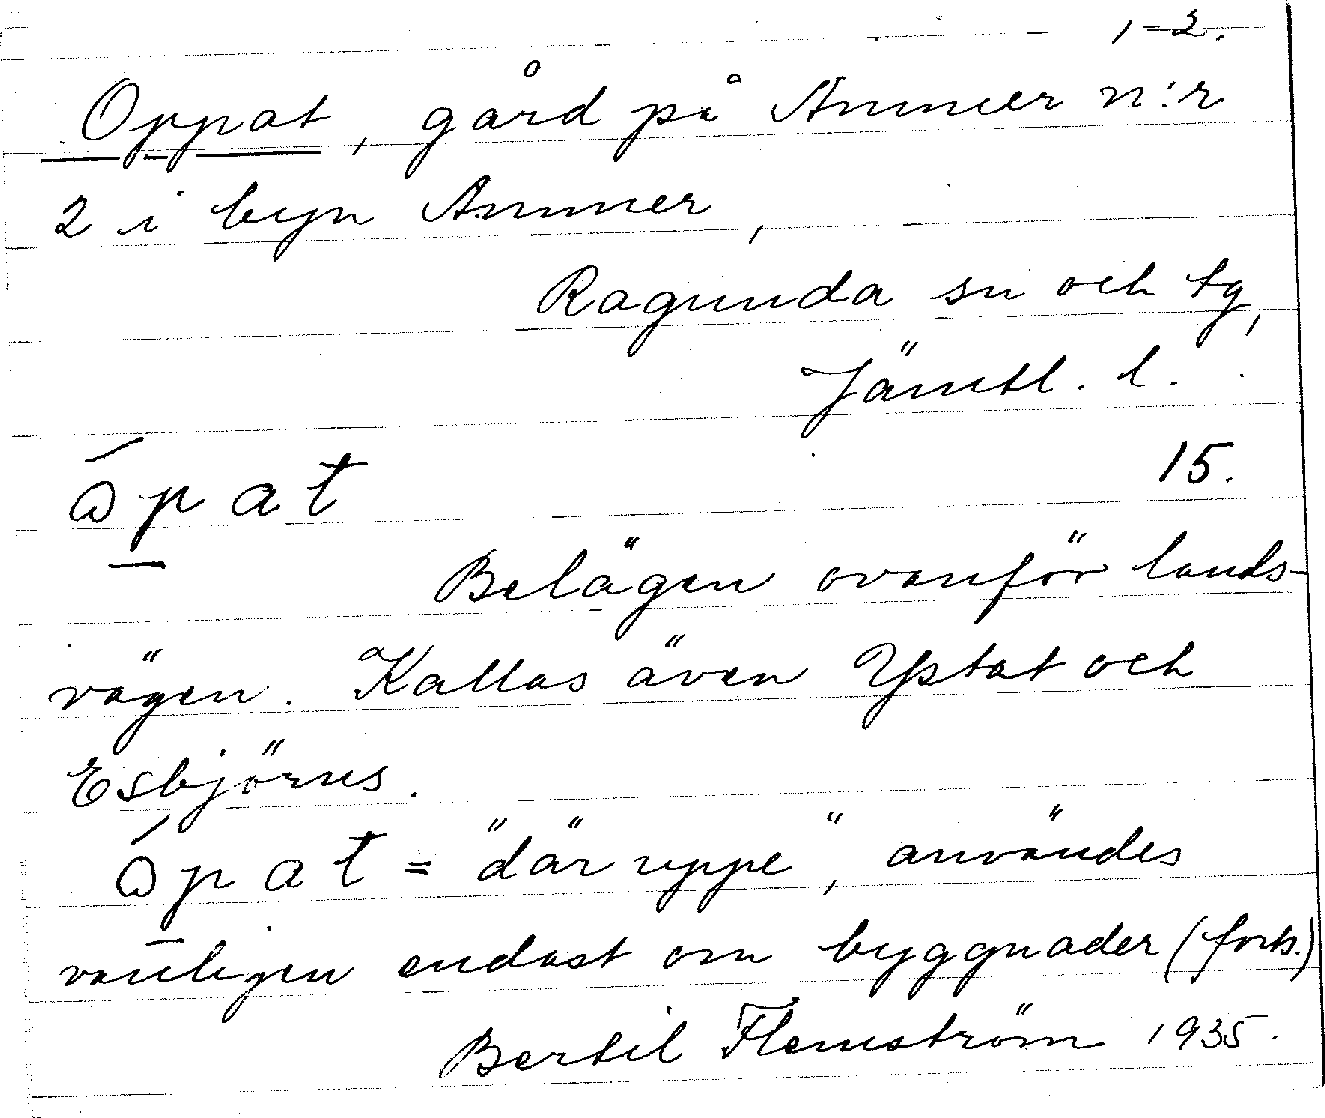 1-2.
Oppat, gård på Ammer n:r
2 i byn Ammer,
Ragunda sn och tg,
Jämtl. l.
ɷ́p̲at 15.
Belägen ovanför lands-
vägen. Kallas även Ystat och
Esbjörns.
ɷ́p̲at = "där uppe", användes
vanligen endast om byggnader (forts.)
Bertil Flemström 1935.